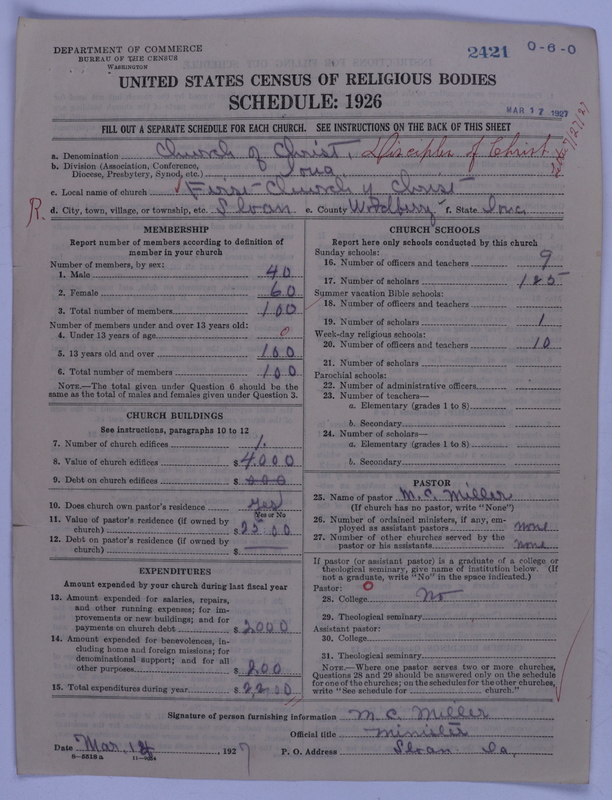 DEPARTMENT OF COMMERCE
BUREAU OF THE CENSUS
WASHINGTON
2421 0-6-0
UNITED STATES CENSUS OF RELIGIOUS BODIES
SCHEDULE: 1926
MAR 17 1927
FILL OUT A SEPARATE SCHEDULE FOR EACH CHURCH. SEE INSTRUCTIONS ON THE BACK OF THIS SHEET
a. Denomination Church of Christ, Disciples of Christ
b. Division (Association, Conference, Diocese, Presbytery, Synod, etc.) Iowa
c. Local name of church First Church of Christ
R. d. City, town, village, or township, etc. Sloan e. County Woodbury f. State Iowa
MEMBERSHIP
Report number of members according to definition of member in your church
Number of members, by sex:
1. Male 40
2. Female 60
3. Total number of members 100
Number of members under and over 13 years old:
4. Under 13 years of age 0
5. 13 years old and over 100
6. Total number of members 100
NOTE.—The total given under Question 6 should be the same as the total of males and females given under Question 3.
CHURCH BUILDINGS
See instructions, paragraphs 10 to 12
7. Number of church edifices 1.
8. Value of church edifices $ 4000
9. Debt on church edifices $ 000
10. Does church own pastor's residence yes
Yes or No
11. Value of pastor's residence (if owned by church) $ 2500
12. Debt on pastor's residence (if owned by church) $
EXPENDITURES
Amount expended by your church during last fiscal year
13. Amount expended for salaries, repairs, and other running expenses; for improvements or new buildings; and for payments on church debt $ 2000
14. Amount expended for benevolences, including home and foreign missions; for denominational support; and for all other purposes $ 200
15. Total expenditures during year $ 2200
CHURCH SCHOOLS
Report here only schools conducted by this church
Sunday schools:
16. Number of officers and teachers 9
17. Number of scholars 125
Summer vacation Bible schools:
18. Number of officers and teachers
19. Number of scholars 1
Week-day religious schools:
20. Number of officers and teachers 10
21. Number of scholars
Parochial schools:
22. Number of administrative officers
23. Number of teachers—
a. Elementary (grades 1 to 8)
b. Secondary
24. Number of scholars—
a. Elementary (grades 1 to 8)
b. Secondary
PASTOR
25. Name of pastor M. C. Miller
(If church has no pastor, write "None")
26. Number of ordained ministers, if any, employed as assistant pastors none
27. Number of other churches served by the pastor or his assistants none
If pastor (or assistant pastor) is a graduate of a college or theological seminary, give name of institution below. (If not a graduate, write "No" in the space indicated.)
Pastor: 0
28. College No
29. Theological seminary
Assistant pastor:
30. College
31. Theological seminary
NOTE.—Where one pastor serves two or more churches, Questions 28 and 29 should be answered only on the schedule for one of the churches; on the schedules for the other churches, write "See schedule for church."
Signature of person furnishing information M. C. Miller
Official title Minister
Date Mar. 12, 1927 P. O. Address Sloan Ia.